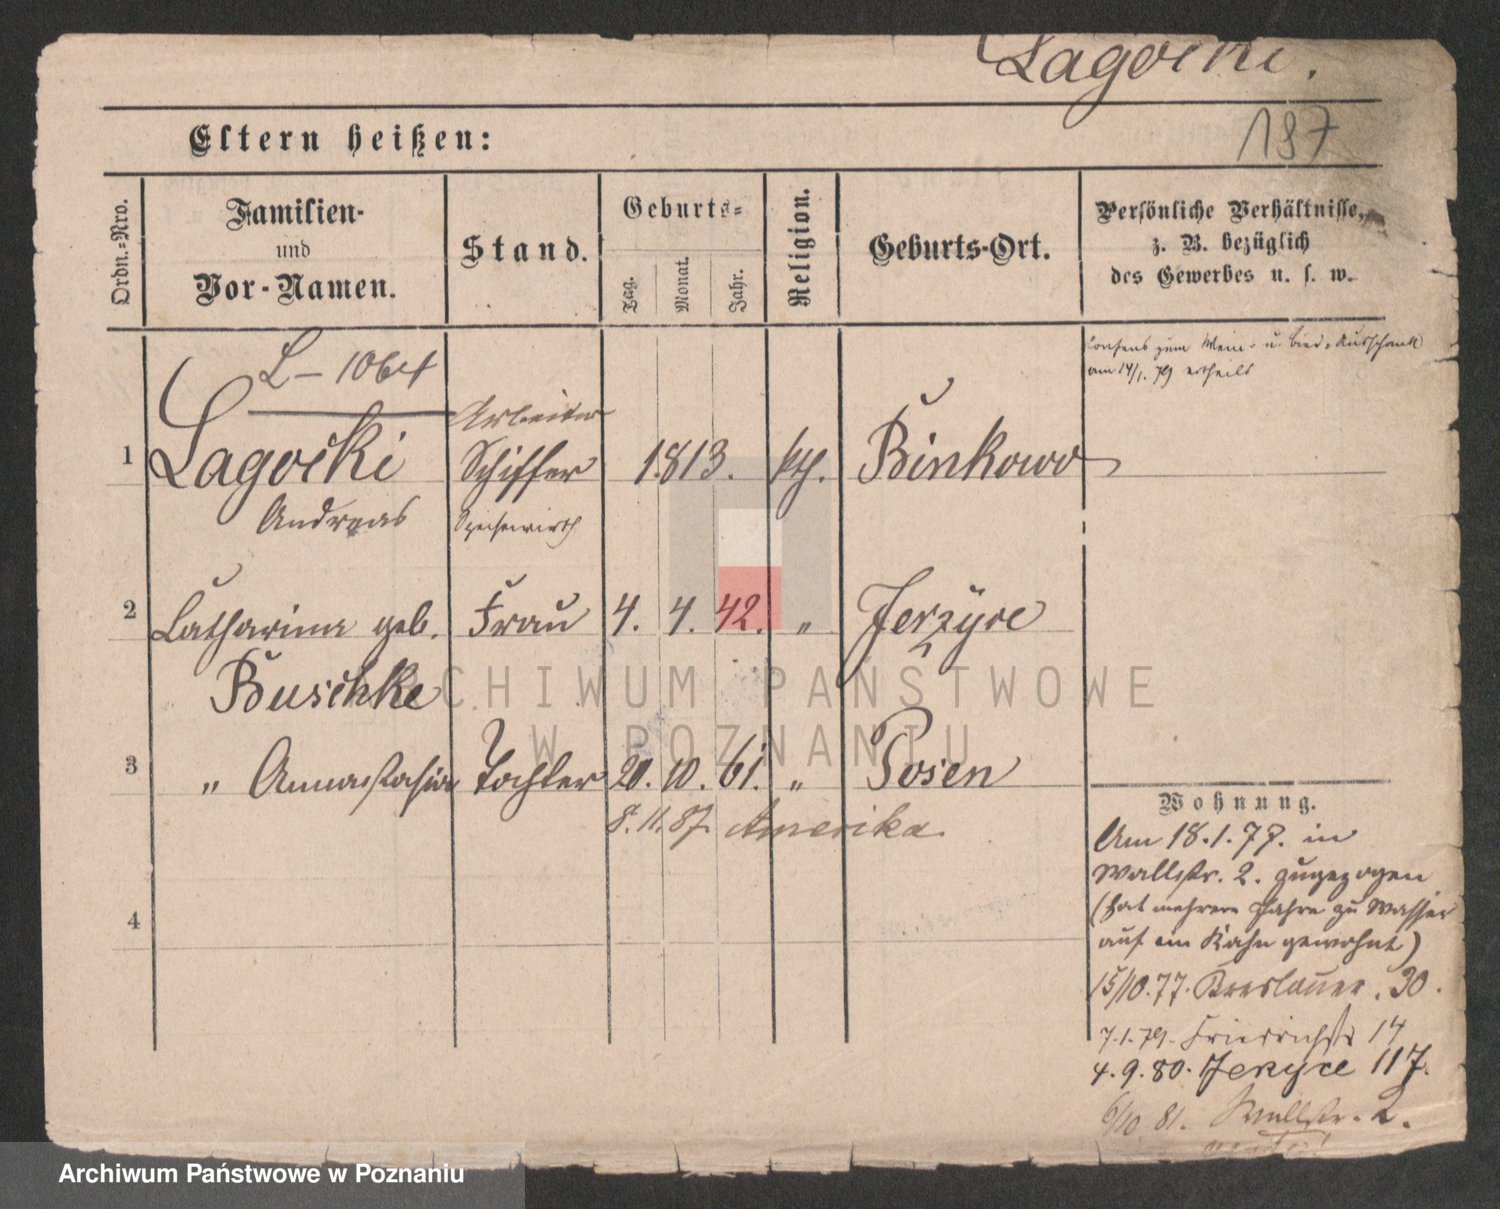 Lagocki.
187
Eltern heißen:
Ordn.-Nro.
Familien-
und
Vor-Namen.
Stand.
Geburts-
Tag.
Monat.
Jahr.
Religion.
Geburts-Ort.
Persönliche Verhältnisse,
z. B. bezüglich
des Gewerbes u. s. w.
Consens zum Wein- u. Bier-Ausschank
am 14/1. 79 ertheilt
L – 1064
Arbeiter
1 Lagocki Schiffer 1813. kth. Binkowo
Andreas Speisewirth
2 Catharina geb. Frau 4. 4. 42. " Jerzyce
Buschke
3 " Annastasia Tochter 20. 10. 61. " Posen
8. 11. 87. Amerika
4
Wohnung.
Am 18.1.77. in
Wallstr. 2. zugezogen
(hat mehrere Jahre zu Wasser
auf ein Kahn gewohnt)
15/10.77. Breslauer. 30.
7.1.79. Friedrichstr 14
4.9.80. Jerzyce 117.
6/10 81. Wallstr. 2.
ARCHIWUM PAŃSTWOWE
W POZNANIU
Archiwum Państwowe w Poznaniu